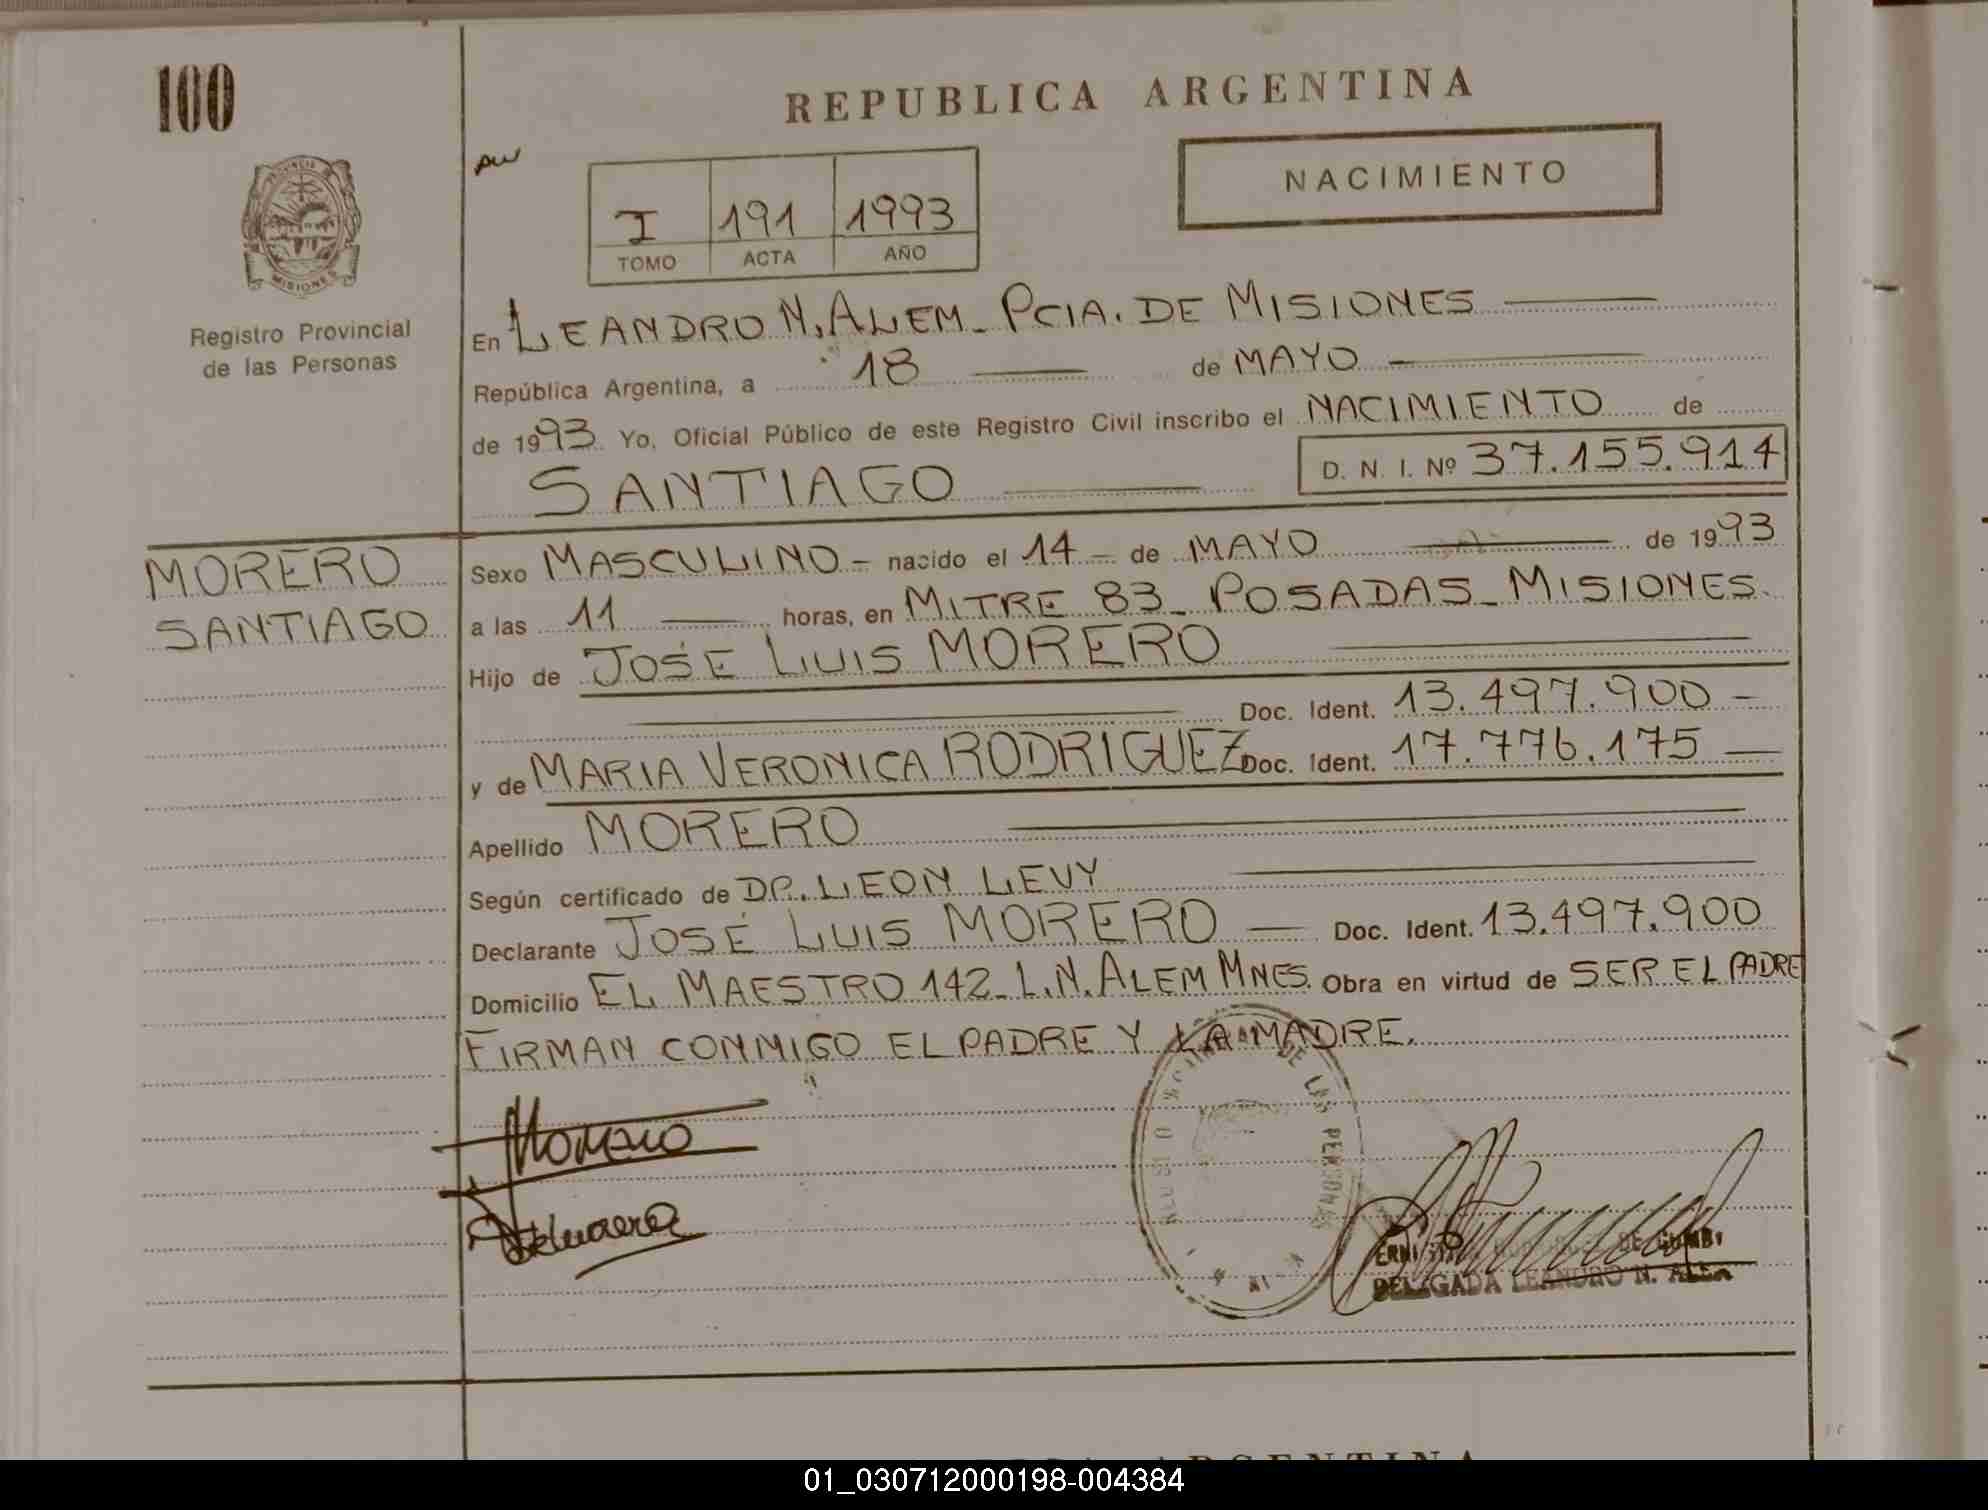 100
REPUBLICA ARGENTINA
NACIMIENTO
I 191 1993
TOMO ACTA AÑO
PROVINCIA
MISIONES
Registro Provincial
de las Personas
En LEANDRO N. ALEM - PCIA. DE MISIONES
República Argentina, a 18 de MAYO
de 1993. Yo, Oficial Público de este Registro Civil inscribo el NACIMIENTO de
SANTIAGO D. N. I. Nº 37.155.914
MORERO
SANTIAGO
Sexo MASCULINO - nacido el 14 - de MAYO de 1993
a las 11 horas, en MITRE 83 - POSADAS - MISIONES.
Hijo de JOSÉ LUIS MORERO
Doc. Ident. 13.497.900 -
y de MARIA VERONICA RODRIGUEZ Doc. Ident. 17.776.175
Apellido MORERO
Según certificado de DR. LEON LEVY
Declarante JOSÉ LUIS MORERO - Doc. Ident. 13.497.900
Domicilio EL MAESTRO 142 - L.N. ALEM MNES. Obra en virtud de SER EL PADRE
FIRMAN CONMIGO EL PADRE Y LA MADRE.
Morero
DE LAS PERSONAS
DE GUMBI
DELEGADA LEANDRO N. ALEM
ARGENTINA
01_030712000198-004384